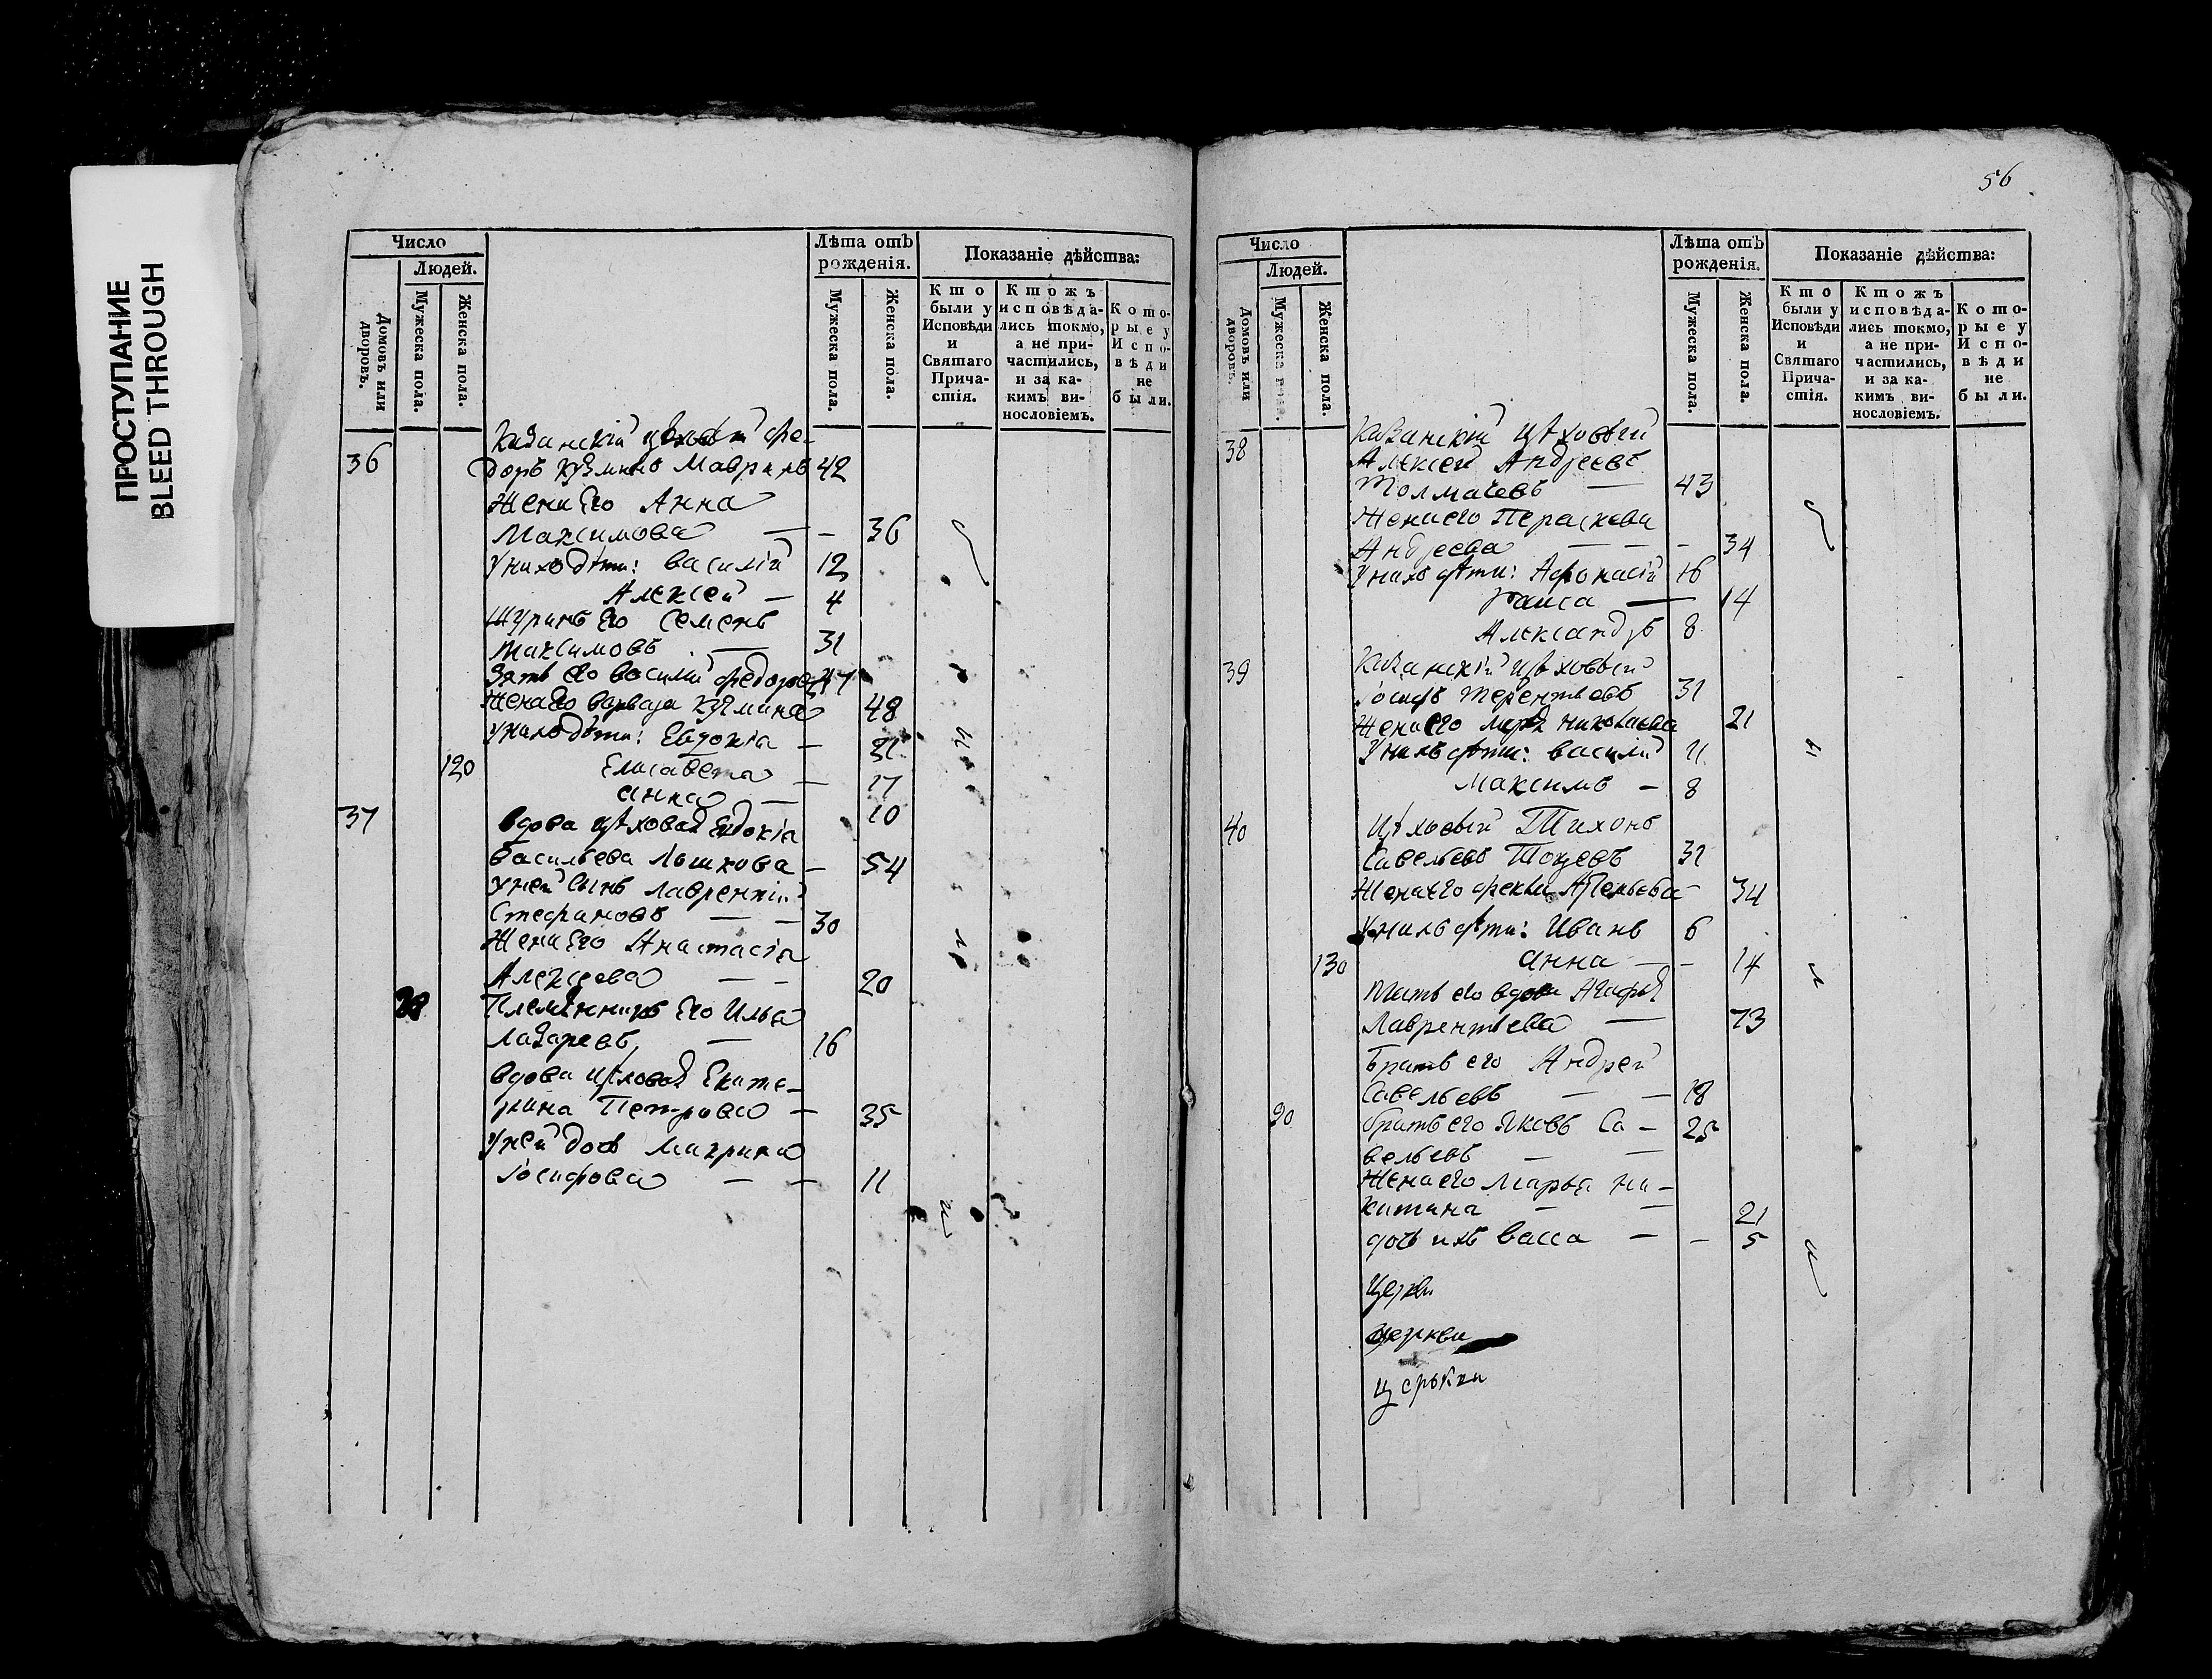 ПРОСТУПАНИЕ
BLEED THROUGH
Число
Людей.
Домовъ или дворовъ.
Мужеска пола.
Женска пола.
Лѣта отъ рожденія.
Мужеска пола.
Женска пола.
Показаніе дѣйства:
Кто были у Исповѣди и Святаго Причастія.
Ктожъ исповѣдались токмо, а не причастились, и за какимъ винословіемъ.
Которые у Исповѣди не были.
Казанскій цѣховый Фе-
36 доръ Кузминъ Мавринъ 42
Жена Его Анна
Максимова — - 36
У нихъ дѣти: Василій 12
Алексей — 4
Шуринъ Его Семенъ
Максимовъ — 31
Зять Его Василий Федоровъ 47
Жена Его Варвара Кузмина 48
У нихъ дѣти: Евдокіа —
120 Елисавета — 17
Анна — 10
37 Вдова цѣховая Евдокіа
Васильева Лошкова — 54
У ней Сынъ Лаврентій
Стефановъ — — 30
Жена Его Анастасіа
Алексеева — — 20
Племѣнникъ Его Илья
Лазаревъ — 16
Вдова цѣховая Екате-
рина Петрова — 35
У ней дочь Макрина
Іосифова — — 11
56
Число
Людей.
Домовъ или дворовъ.
Мужеска пола.
Женска пола.
Лѣта отъ рожденія.
Мужеска пола.
Женска пола.
Показаніе дѣйства:
Кто были у Исповѣди и Святаго Причастія.
Ктожъ исповѣдались токмо, а не причастились, и за какимъ винословіемъ.
Которые у Исповѣди не были.
38 Казанскій цѣховый
Алексей Андреевъ
Толмачевъ — 43
Жена его Пераскева
Андреева — — - 34
У нихъ дѣти: Афонасій 16
Раиса — 14
Александръ 8
39 Казанскій цѣховый
Іосифъ Терентьевъ 31
Жена его Николаева 21
У нихъ дѣти: Василий 11
Максимъ — 8
40 Цѣховый Тихонъ
Савельевъ 31
Жена его 34
У нихъ дѣти: Иванъ 6
130 Анна — - 14
Мать его вдова Агафья
Лаврентьева — 73
Братъ его Андрей
Савельевъ — — 18
90 братъ его Яковъ Са- 25
вельевъ — —
Жена его Марья Ни-
китина — — 21
дочь ихъ Васса — - 5
Церкви
церкви